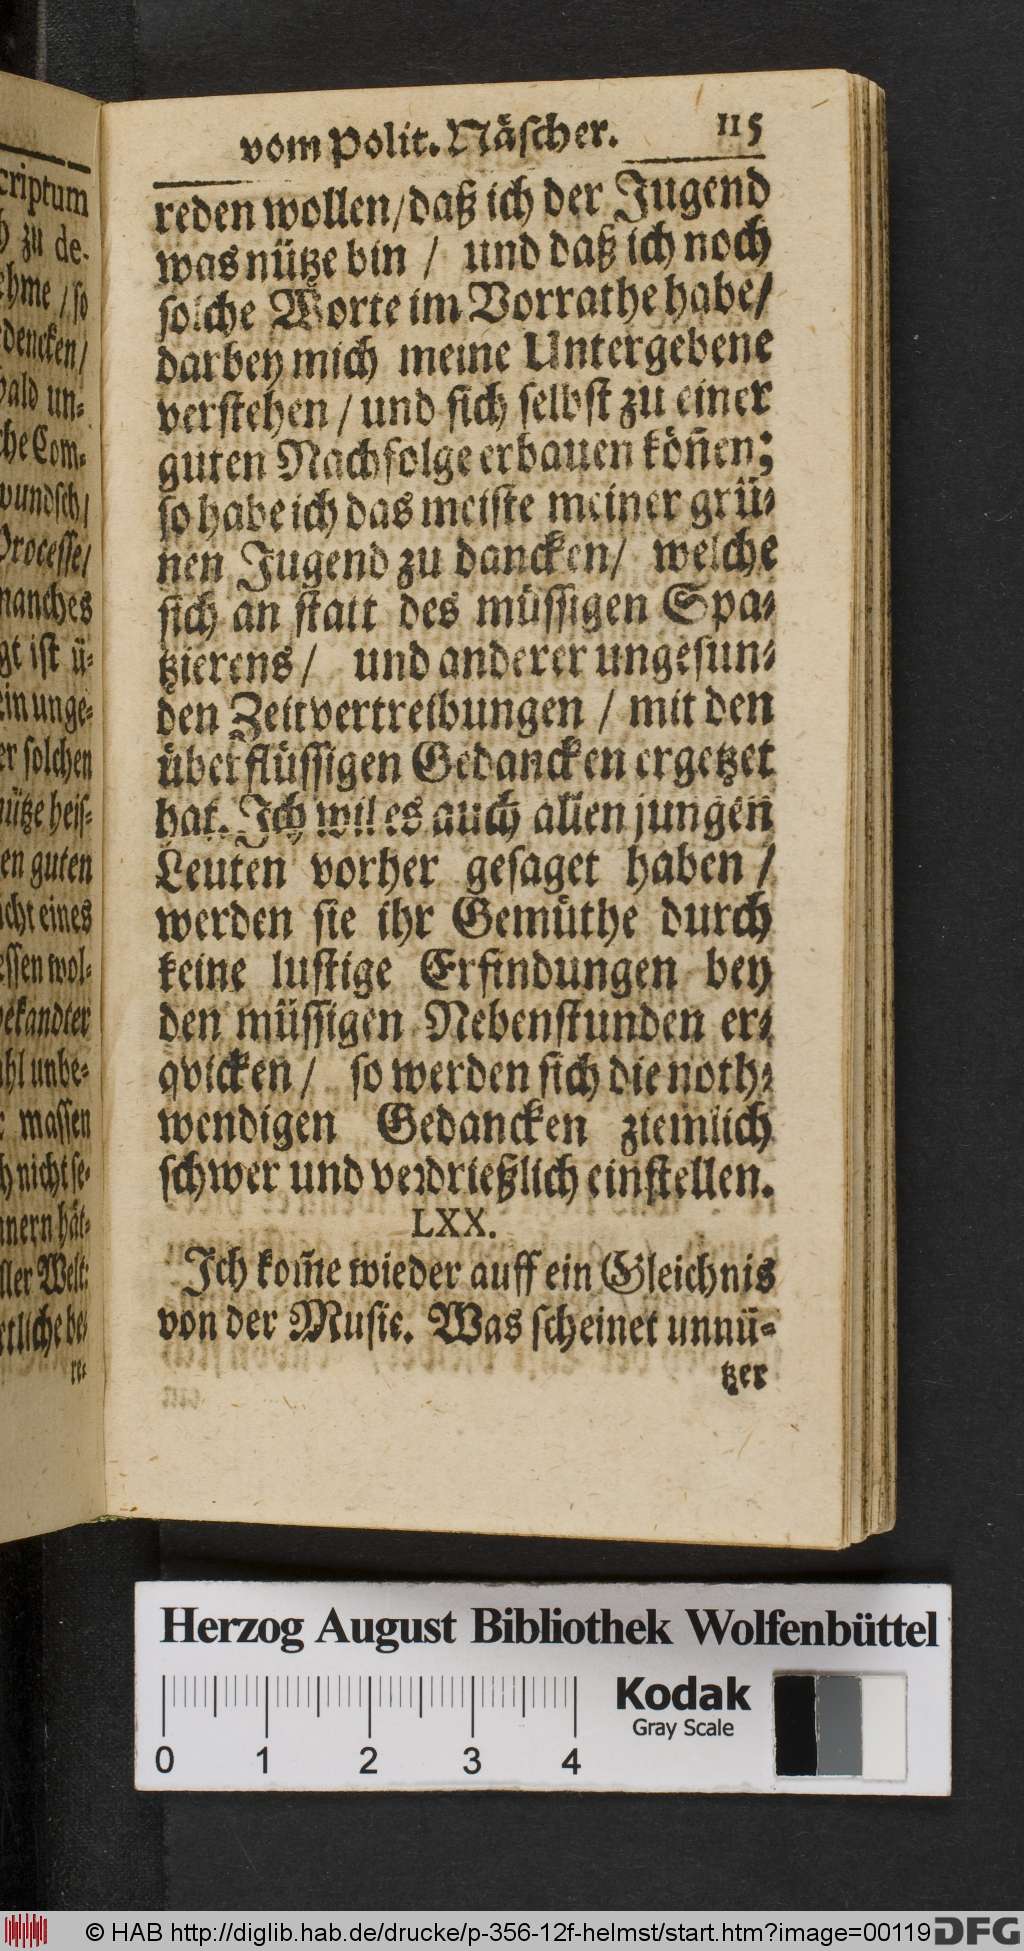 criptum
zu de-
ehme / so
dencken /
bald un-
che Com-
wundsch /
Processe /
manches
gt ist ü-
ein unge-
er solchen
nütze heis-
en guten
icht eines
essen wol-
bekandter
ahl unbe-
massen
h nicht se-
nnern hät-
ller Welt:
rtliche be-
re-
vom Polit. Näscher. 115
reden wollen / daß ich der Jugend
was nütze bin / und daß ich noch
solche Worte im Vorrathe habe /
darbey mich meine Untergebene
verstehen / und sich selbst zu einer
guten Nachfolge erbauen köñen;
so habe ich das meiste meiner grü-
nen Jugend zu dancken / welche
sich an statt des müssigen Spa-
tzierens / und anderer ungesun-
den Zeitvertreibungen / mit den
überflüssigen Gedancken ergetzet
hat. Ich wil es auch allen jungen
Leuten vorher gesaget haben /
werden sie ihr Gemüthe durch
keine lustige Erfindungen bey
den müssigen Nebenstunden er-
qvicken / so werden sich die noth-
wendigen Gedancken ziemlich
schwer und verdrießlich einstellen.
LXX.
Ich kom̃e wieder auff ein Gleichnis
von der Music. Was scheinet unnü-
tzer
Herzog August Bibliothek Wolfenbüttel
Kodak
Gray Scale
0 1 2 3 4
© HAB http://diglib.hab.de/drucke/p-356-12f-helmst/start.htm?image=00119 DFG